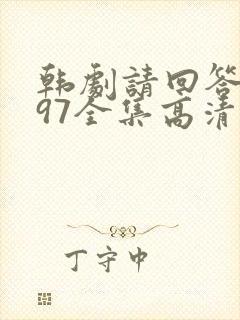 韩劇請回答
97全集高清
丁守中